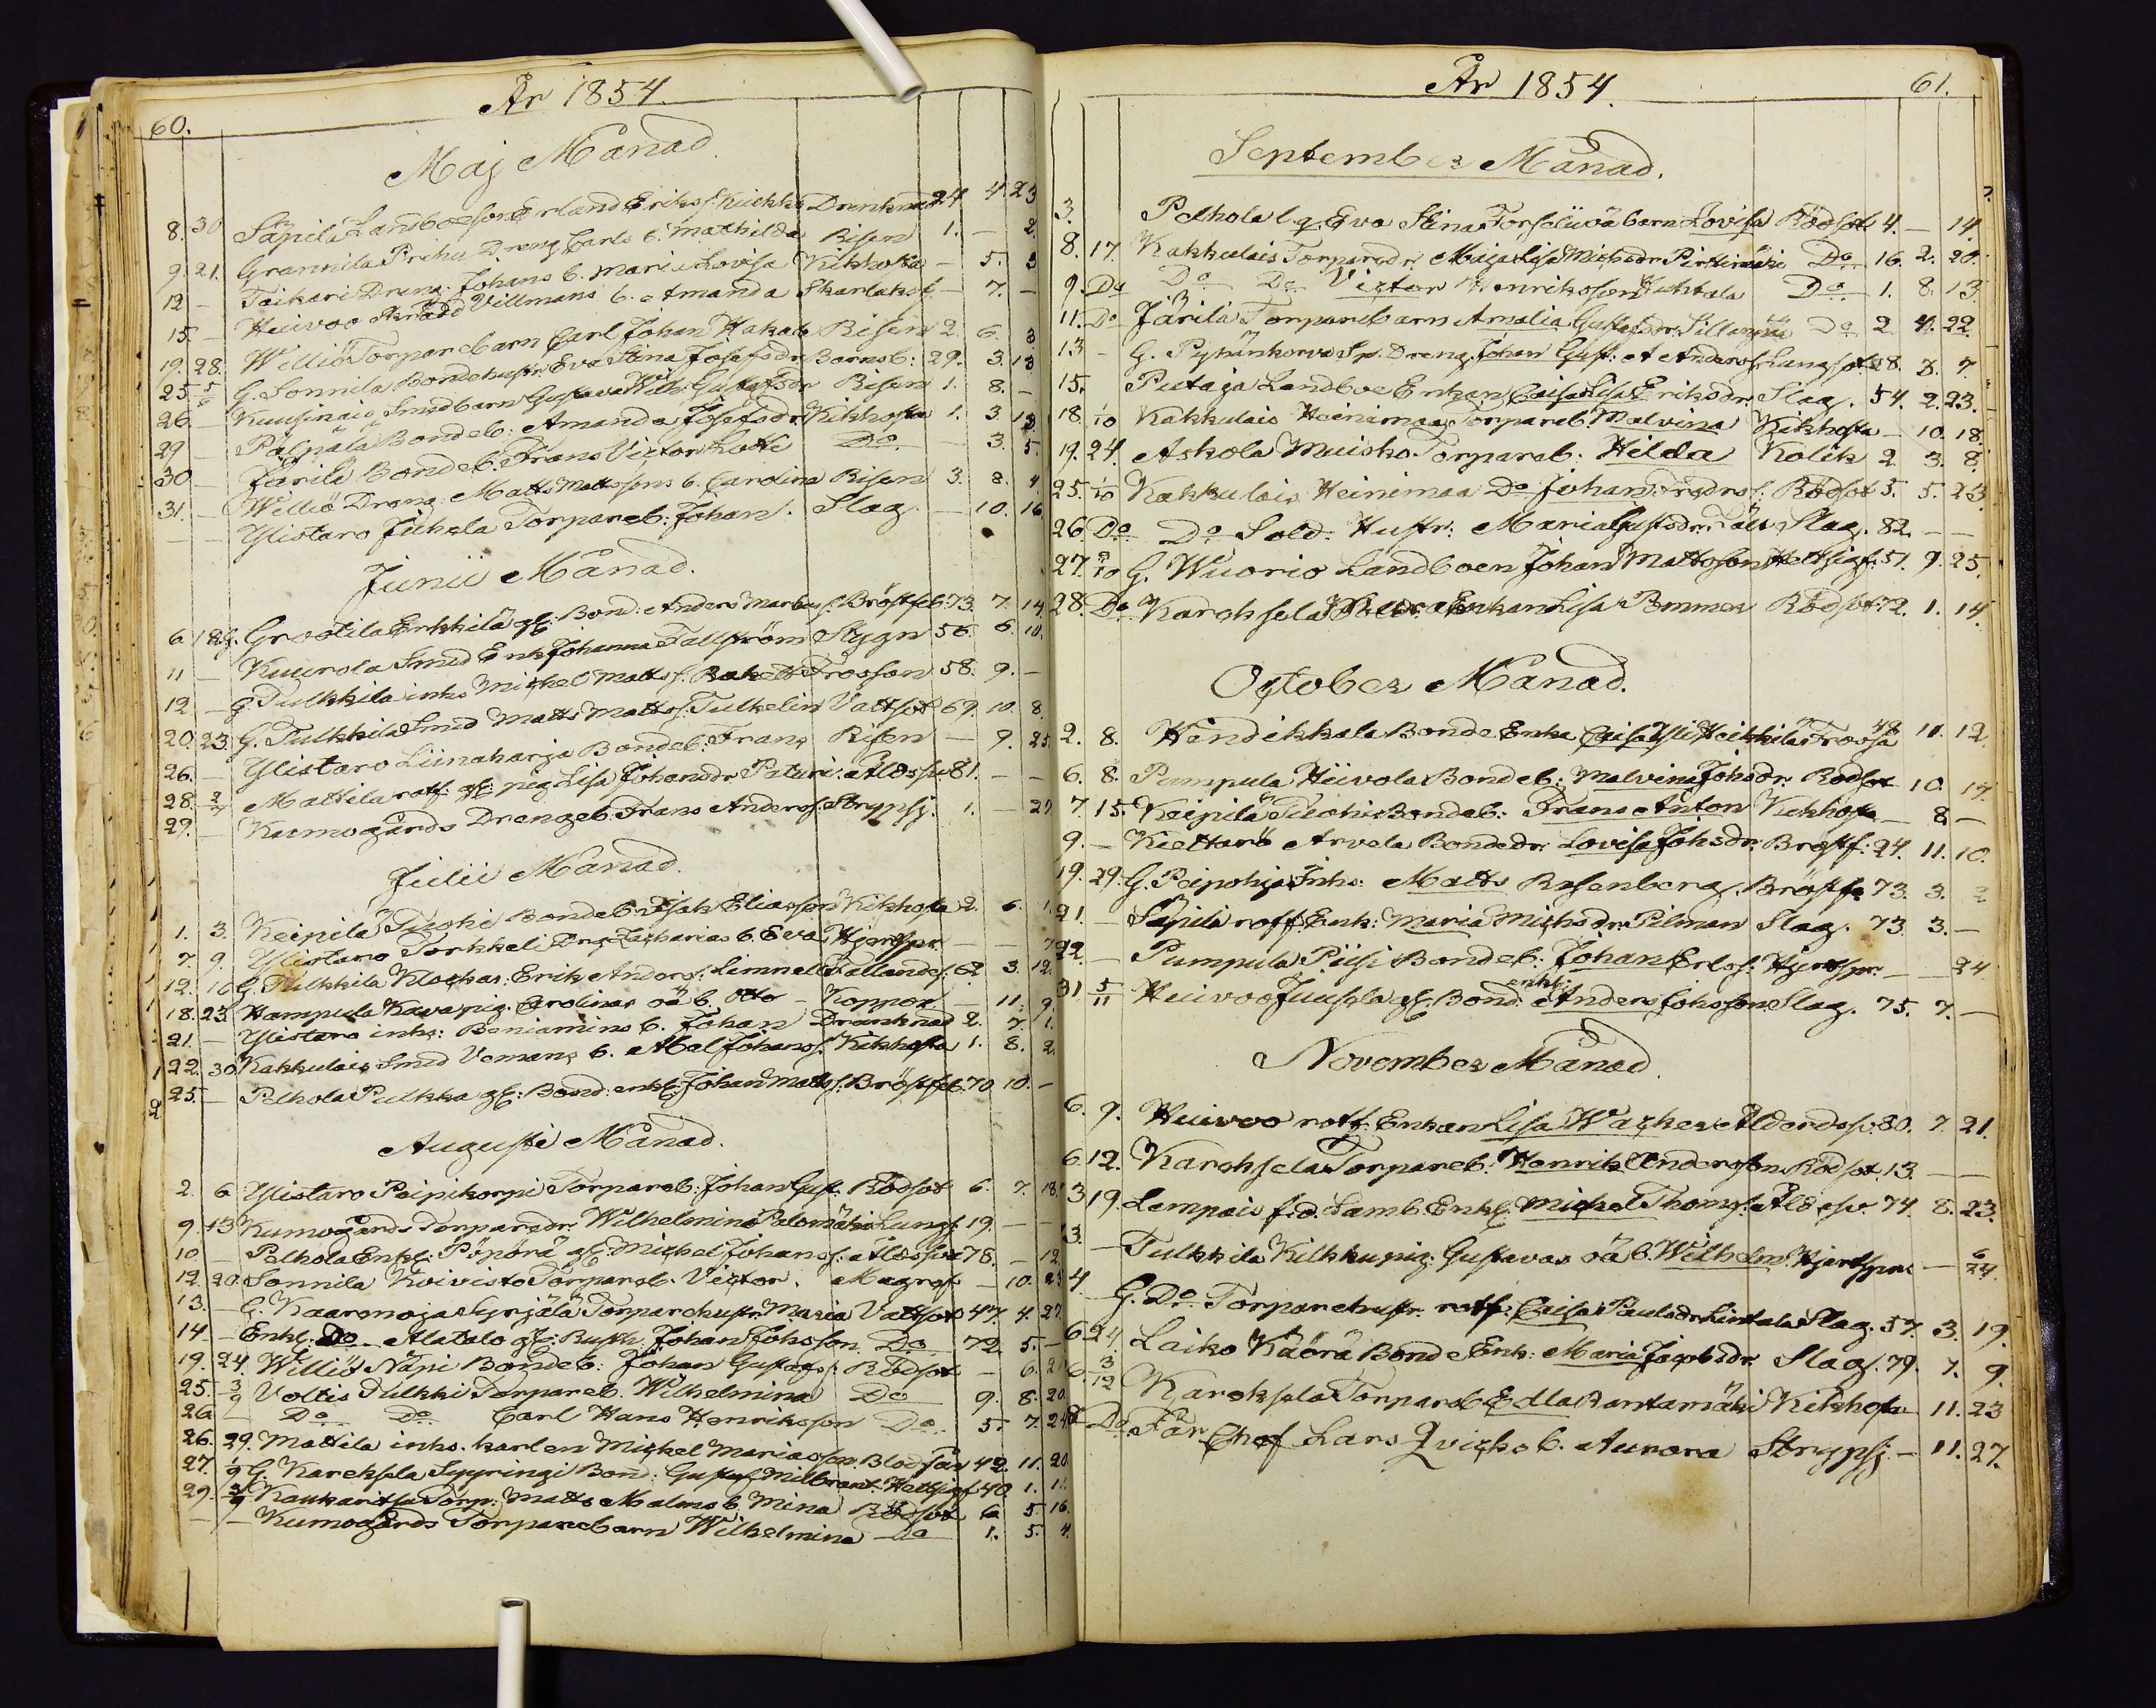 År 1854.
60.
Maj Månad.
8. 30 Säpilä Landboeson Erland Erikss. Kuckko Drunknad 24 4. 23
9. 21. Grannila Prihu Dreng Carls b. Mathilda Risen 1. — 2.
12 — Taikari Dreng. Johans b. Maria Lovisa Kikhosta — 5. 3
15. — Heivoo Skrädd Villmans b. Amanda Skarlaksf. — 7. —
19. 28. Williö Torparebarn Carl Johan Hakala Risen 2. 6. 3
25. 5/6 G. Sonnila Bondehustr. Eva Stina Josefsdr. Barnsb: 29. 3. 13
26. — Kuusinais Smedbarn Gustava Wilh: Gustafsdr Risen 1. 8. —
29 — Pälpälä Bondeb: Amanda Josefsdr. Kikhosta 1. 3 13
30 — Järilä Bondeb. Frans Victor Lotti Do — 3. 5.
31. — Williö Dreng: Matts Mattssons b. Carolina Risen 3. 8. 4
— — Ylistaro Juhola Torpareb: Johan. Slag. — 10. 16.
Junii Månad.
6. 18. G. Grootila Erkkilä gl: Bond: Anders Markuss. Bröstfeb. 73. 7. 14
11 — Kuurola Smed Enk Johanna Tallström Stygn 56. 6. 10.
12 — G. Tulkkila inhs Michel Mattss. Rakett Frossan 58. 9. —
20. 23. G. Tulkkila Smed Matts Mattss. Tulkelin Vattsot 69. 10. 8.
26. — Ylistaro Liinaharja Bondeb. Frans Risen — 9. 25.
28. 2/7 Mattila rotf. gl: pig Lisa Johansdr Paturi. Åldssv. 81. — —
29. — Kumogårds Drengeb. Frans Anderss. Strypsj. 1. — 29.
Julii Månad.
1. 3. Keipilä Tuoki Bondeb. Isak Eliasson Kikhosta 2. 6. 1.
7. 9. Ylistaro Torkkeli Drg Zacharias b. Eva Hjertspr. — — 7
12. 16 G. Tulkkila Klockar. Erik Anderss. Limnell Fallandes. 62. 3. 12.
18. 23 Hampula Kavapig. Carolinas oä b. Otto — Koppor — 11. 9.
21. — Ylistaro inhs: Beniamins b. Johan Drunknad 2. 7. 1.
22. 30 Kakkulais Smed Vemans b. Abel Johanss. Kikhosta 1. 8. 2.
25. — Pelhola Pulkka gl: Bond: enkl: Johan Mattss. Bröstfeb. 70 10. —
Augusti Månad.
2. 6 Ylistaro Peipikorpi Torpareb: Johan Gust. Rödsot 6. 7. 18.
9. 13 Kumogårds Torparedr. Wilhelmina Palomäki Lungs. 19. — —
10 — Pelhola Enkl: Pöpörä gl: Michel Johanss. Åldssv. 78. — 12.
12. 20. Sonnila Koivisto Torpareb. Victor. Magref — 10. 23
13. — G. Kaaronoja Syrjälä Torparehustr. Maria Vattsot 47. 4. 27.
14 — Enkl. Do Alatalo gl: Rusth. Johan Johsson Do 72. 5. —
19. 24. Williö Näpi Bondeb: Johan Gustafss. Rödsot — 6. 21
25. 3/9 Voltis Tulkki Torpareb. Wilhelmina Do 9. 8. 20.
26 — Do Do Carl Hans Henriksson Do 5. 7. 24
26. 29. Mattila inhs. karlen Michel Mariasson. Blodfån 42. 11. 20.
27. 1/9 G. Kareksela Syyringi Bond: Gustaf Milbrant. Hettsigf. 40 1. 1.
29. 3/9 Kaukaritsa Torp: Matts Malms b. Mina Rödsot 6 5. 16.
— — Kumogårds Torparebarn Wilhelmina Do 1. 5. 4.
År 1854.
61.
September Månad.
3. Pelhola l.q. Eva Stina Forselii oä barn Lovisa Rödsot 4. — 14.
8. 17. Kakkulais Torparedr. Maja Lisa Michsdr Pirttimäki Do 16. 2. 20.
9. Do Do Do Victor Henriksson Huhtala Do 1. 8. 13.
11. Do Järilä Torparebarn Amalia Gustafsdr. Sillanpää Do 2 4. 22.
13 — G. Pyhänkorva Sp. Dreng. Johan Gust: Anderss. Lungsot 28. 8. 7.
15. Putaja Landboe Enkan Caisa Lisa Eriksdr. Slag. 54. 2. 23.
18. 1/10 Kakkulais Heinimaa Torpareb. Malvina Kikhosta — 10. 18.
19. 24. Askola Muisko Torpareb: Hilda Kolik 2 3. 8.
25. 1/10 Kakkulais Heinimaa Do Johan Fredrss. Rödsot 5. 5. 23
26. Do Do Sold. Hustr: Maria Gustsdr. Tält Slag. 82. — —
27. 8/10 G. Wuorio Landboen Johan Mattsson Hettsigf. 51. 9. 25.
28. Do Kareksela Enkan Lisa Bommer Rödsot. 72. 1. 14.
October Månad.
2. 8. Hendikkala Bonde Enka Caisa Yli Heikkilä Frossa 42 11. 12.
6. 8. Pumpula Hiivola Bondeb: Malvina Johsdr. Rödsot 10. 17.
7. 15. Keipilä Tuoki Bondeb: Frans Anton Kikhosta — 8. —
9. — Kiettarö Arvela Bondedr. Lovisa Johsdr. Bröstf: 24. 11. 10.
19. 29. G. Peipohja Inhs: Matts Rosenberg. Bröstfe 73. 3. 2
21. — Säpilä rotf: Enk: Maria Michsdr. Pilman Slag. 73. 3. —
22. — Pumpula Piisi Bondeb: Johan Erlss. Hjertspr. — — 24
31. 5/11 Heivoo Juusola gl: Bond: enkl: Anders Johsson. Slag. 75. 7. —
November Månad.
6. 9. Heivoo rotf: Enkan Lisa Wacker Ålderdssv. 80. 7. 21.
6. 12. Kareksela Torpareb. Henrik Andersson Rödsot. 13. —
3 19. Lempais f.d. Lamb. Enkl. Michel Thomss. Åldssv. 74. 8. 23.
3. — Tulkkila Kilkkupig. Gustavas oä b. Wilhelm. Hjertspr. — 6/24.
4. — G. Do Torparehustr. rotf: Caisa Paulsdr. Lintala Slag. 57. 3. 19.
6. 24. Laiko Käörä Bonde Enk: Maria Jacobsdr. Slag. 79. 7. 9.
6. 3/12 Kareksela Torpareb. Edla Rantamäki Kikhosta 11. 23
Do Lars Qvichs b. Aurora Strypsj. — 11. 27.